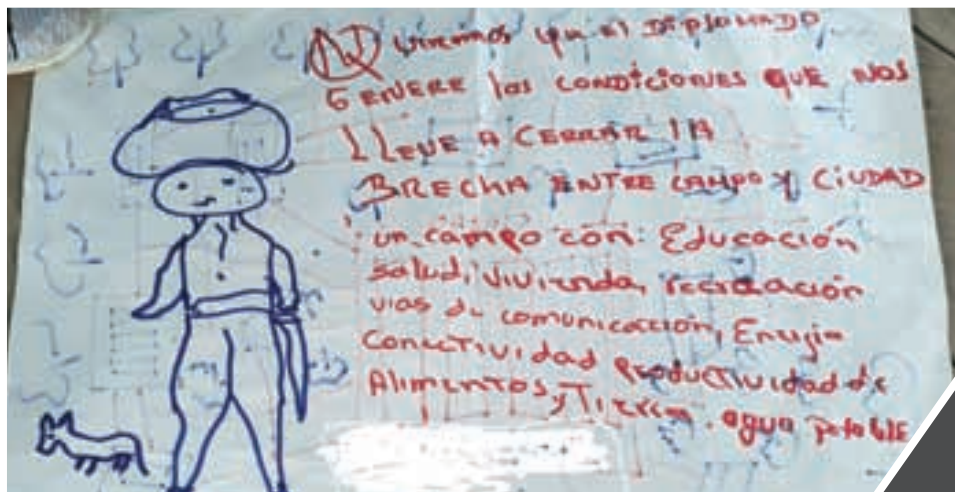 Queremos que el Diplomado
GENERE las CONDICIONES QUE NOS
LLEVE A CERRAR lA
BRECHA ENTRE CAMPO Y CIUDAD
un campo con: Educación
salud, vivienda, recreación
vias de comunicación, Energia
conectividad productividad de
Alimentos, y Tierra. agua potable